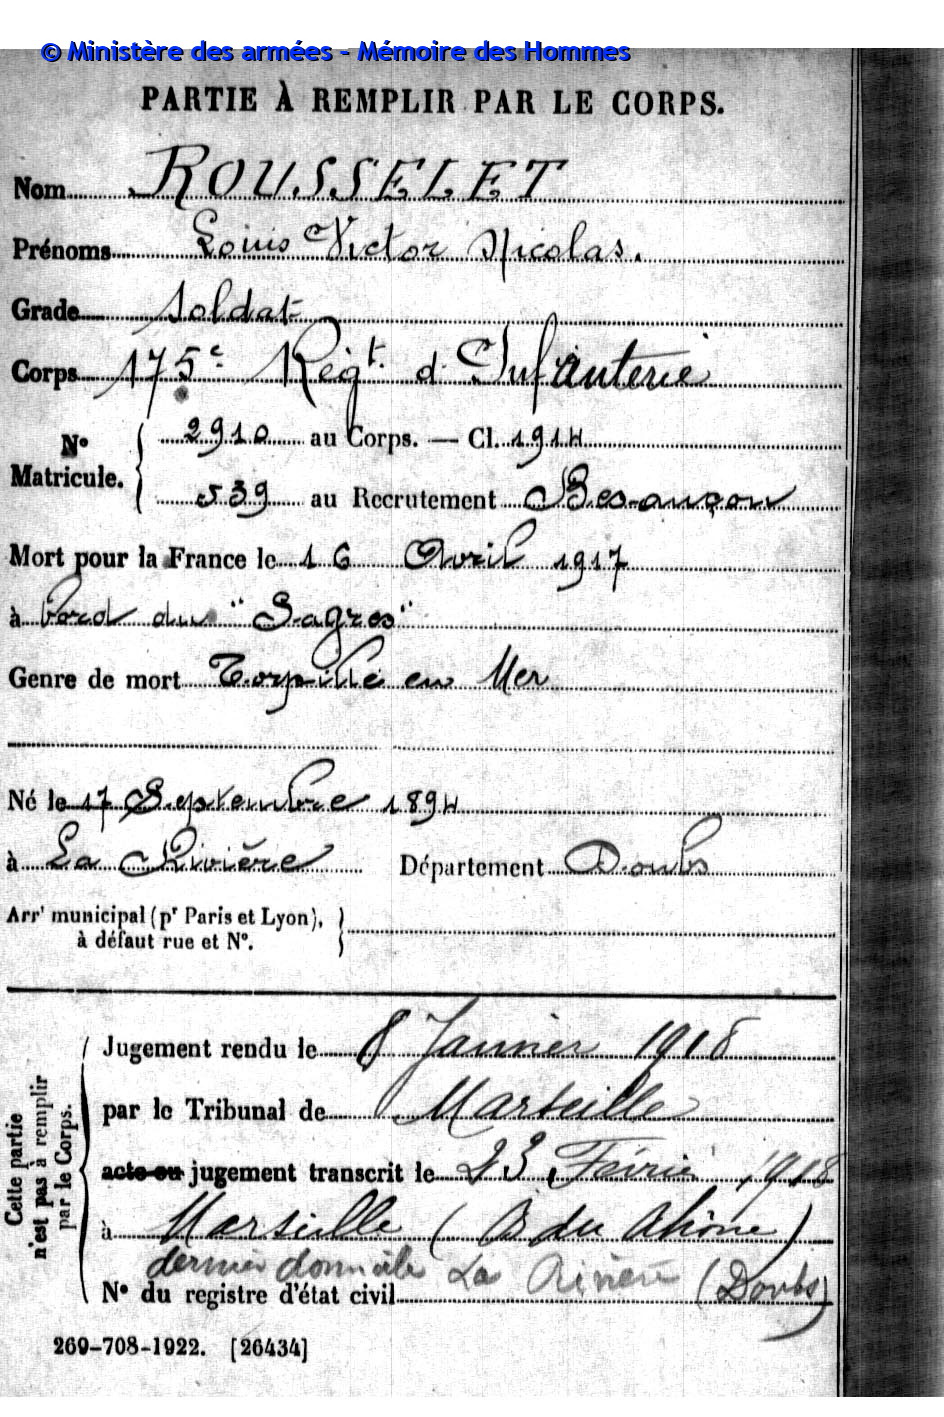 © Ministère des armées - Mémoire des Hommes
PARTIE À REMPLIR PAR LE CORPS.
Nom ROUSSELET
Prénoms Louis Victor Nicolas.
Grade Soldat
Corps 175e Régt d'Infanterie
No Matricule. { 2910 au Corps. — Cl. 1914
539 au Recrutement Besançon
Mort pour la France le 16 Avril 1917
à bord du "Sagres"
Genre de mort Torpillé en Mer
Né le 17 Septembre 1894
à La Rivière Département Doubs
Arrt municipal (pr Paris et Lyon), }
à défaut rue et No.
Cette partie n'est pas à remplir par le Corps.
Jugement rendu le 8 Janvier 1918
par le Tribunal de Marseille
acte ou jugement transcrit le 23 Févrie 1918
à Marseille (B du Rhône)
dernier domicile La Rivière (Doubs)
No du registre d'état civil
260-708-1922. [26434]